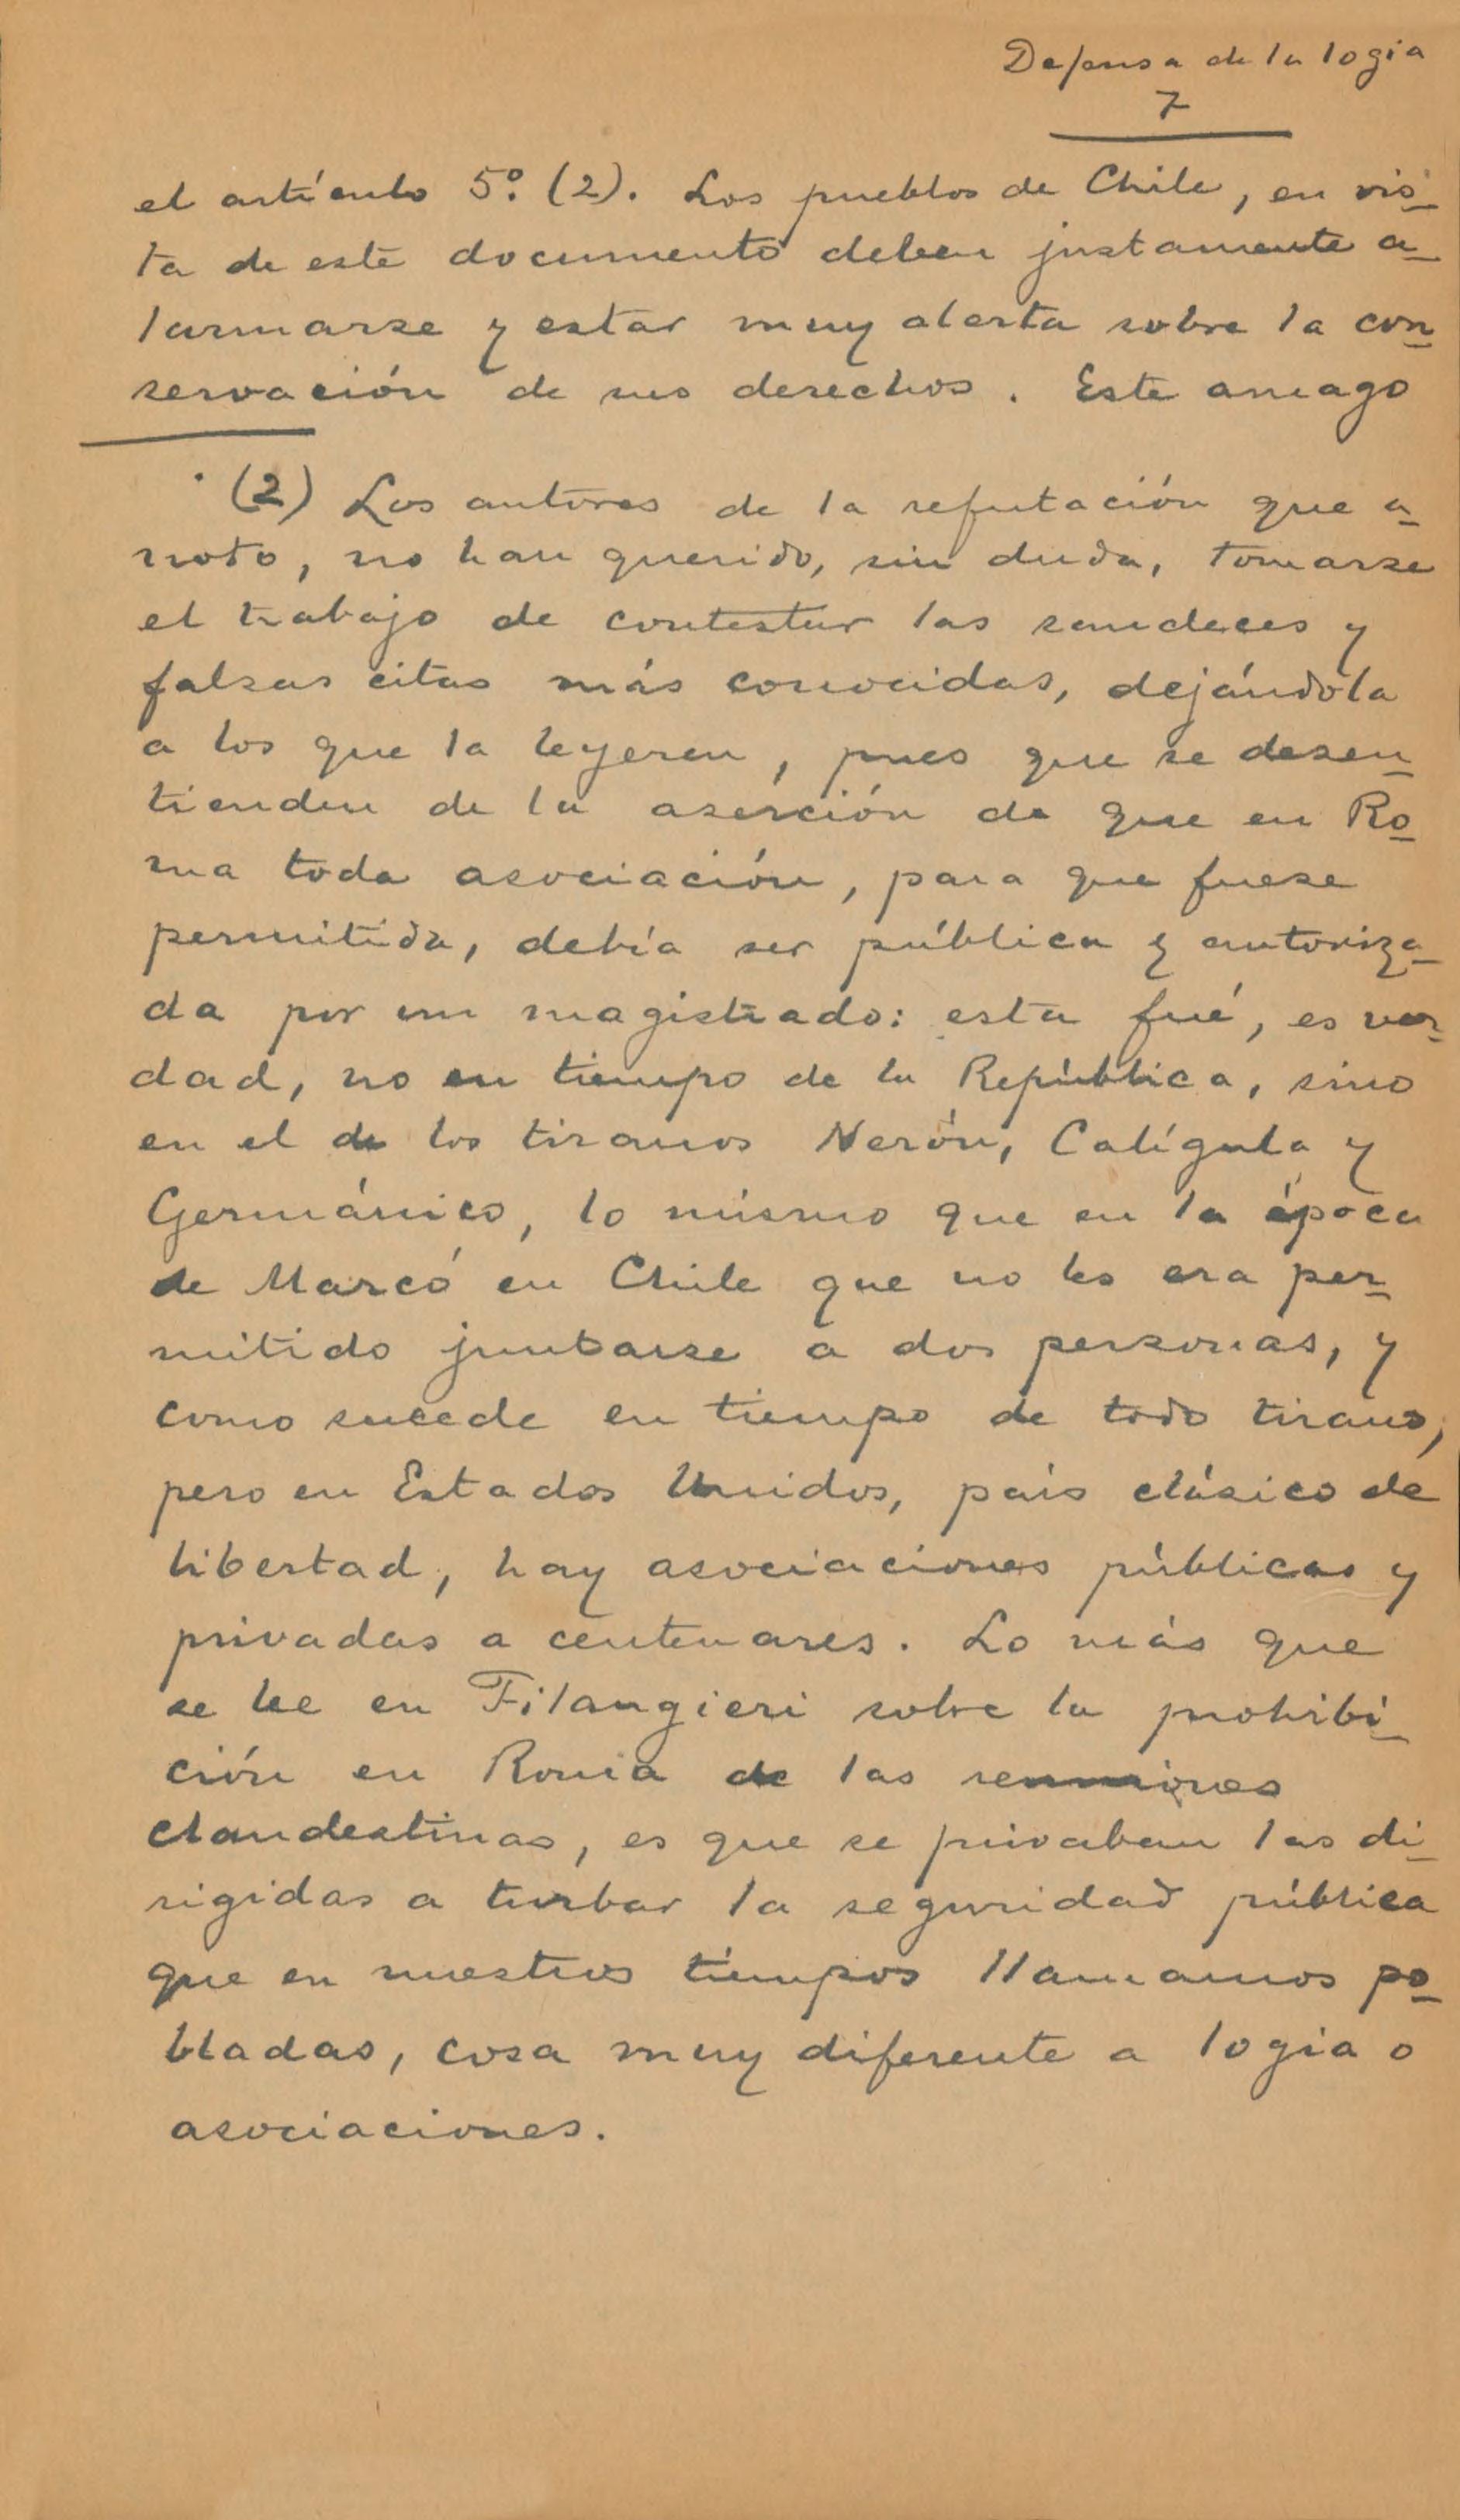 Defensa de la logia
7
el artículo 5º. (2). Los pueblos de Chile, en vis-
ta de este documento deben justamente a-
larmarse y estar muy alerta sobre la con-
servación de sus derechos. Este amago
(2) Los autores de la refutación que a-
noto, no han querido, sin duda, tomarse
el trabajo de contestar las sandeces y
falsas citas más conocidas, dejándola
a los que la leyeren, pues que se desen-
tienden de la aserción de que en Ro-
ma toda asociación, para que fuese
permitida, debía ser pública y autoriza-
da por un magistrado: esta fué, es ver-
dad, no en tiempo de la República, sino
en el de los tiranos Nerón, Calígula y
Germánico, lo mismo que en la época
de Marcó en Chile que no les era per-
mitido juntarse a dos personas, y
como sucede en tiempo de todo tirano,
pero en Estados Unidos, país clásico de
libertad, hay asociaciones públicas y
privadas a centenares. Lo más que
se lee en Filangieri sobre la prohibi-
ción en Roma de las reuniones
clandestinas, es que se privaban las di-
rigidas a turbar la seguridad pública
que en nuestros tiempos llamamos po-
bladas, cosa muy diferente a logia o
asociaciones.